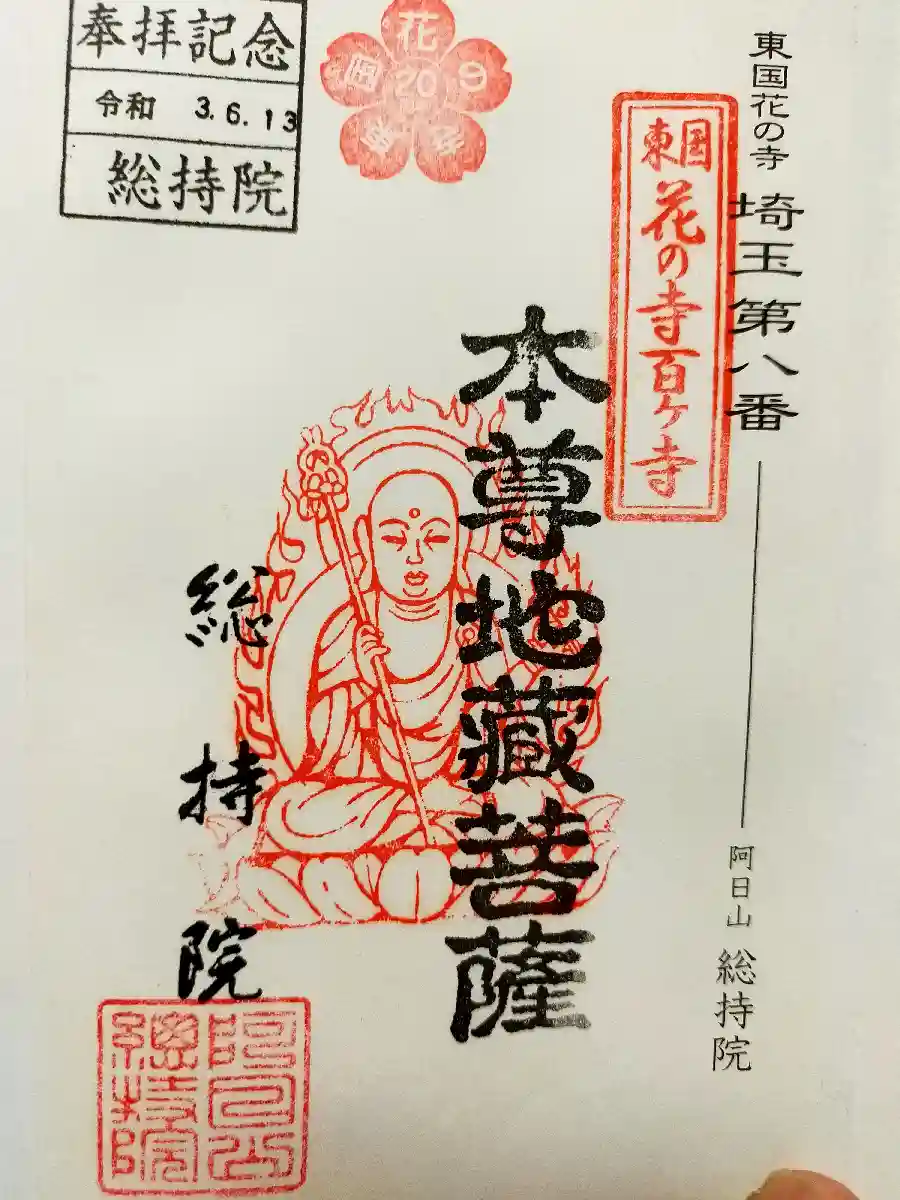 東国花の寺 埼玉第八番
阿日山 総持院
東国
花の寺百ヶ寺
本尊地蔵菩薩
総持院
奉拝記念
令和 3.6.13
総持院
花
20
9
阿日山
總持院